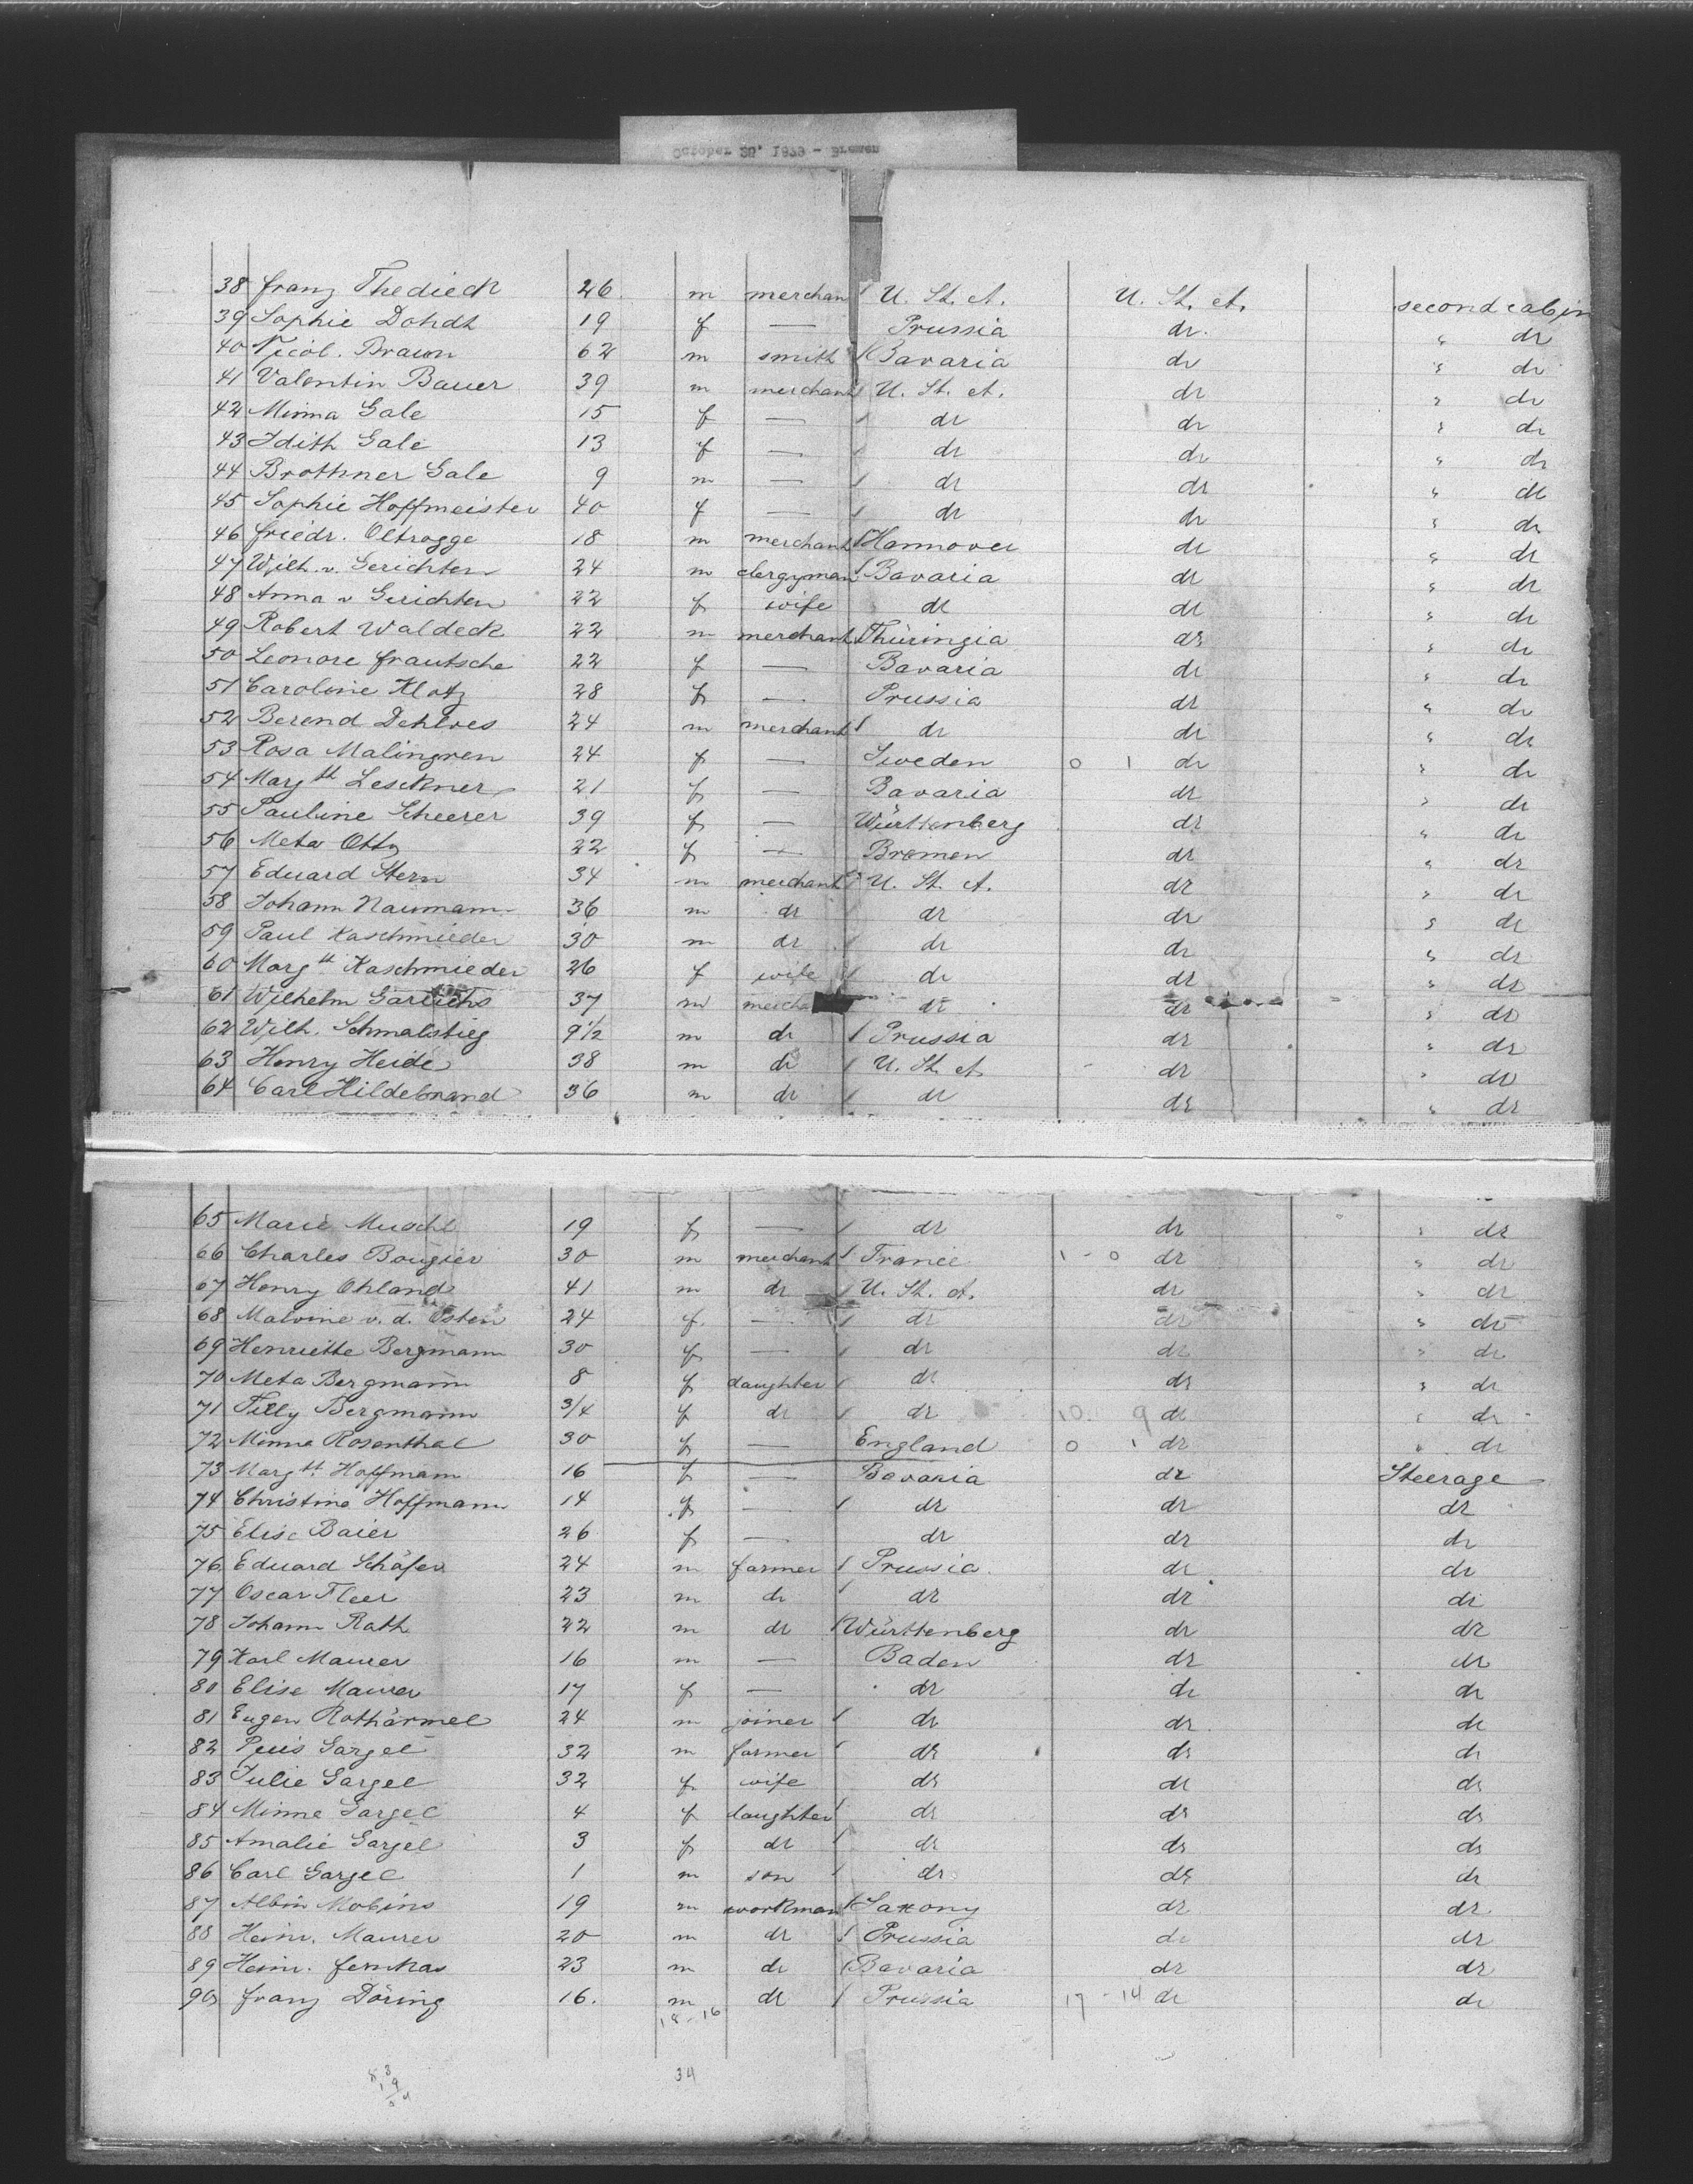 October 30, 1879 - Bremen
38 Franz Thedieck 26 m merchant U. St. A. U. St. A. second cabin
39 Sophie Dohdt 19 f — Prussia dr. " dr
40 Nicol. Braun 62 m smith Bavaria dr " dr
41 Valentin Bauer 39 m merchant U. St. A. dr " dr
42 Minna Gale 15 f — dr dr " dr
43 Idith Gale 13 f — dr dr " dr
44 Brothner Gale 9 m — dr dr " dr
45 Sophie Hoffmeister 40 f — dr dr " dr
46 Friedr. Oltrogge 18 m merchant Hannover dr " dr
47 Wilh. v. Gerichten 24 m clergyman Bavaria dr " dr
48 Anna v Gerichten 22 f wife dr dr " dr
49 Robert Waldeck 22 m merchant Thüringia dr " dr
50 Leonore Frautsche 22 f — Bavaria dr " dr
51 Caroline Klotz 28 f — Prussia dr " dr
52 Berend Dehlves 24 m merchant dr dr " dr
53 Rosa Malingren 24 f — Sweden 0 1 dr " dr
54 Margth Leschner 21 f — Bavaria dr " dr
55 Pauline Scheerer 39 f — Württenberg dr " dr
56 Meta Otto 22 f — Bremen dr " dr
57 Eduard Stern 34 m merchant U. St. A. dr " dr
58 Johann Naumann 36 m dr dr dr " dr
59 Paul Kaschmieder 30 m dr dr dr " dr
60 Margth Kaschmieder 26 f wife dr dr " dr
61 Wilhelm Garlichs 37 m mercha dr dr " dr
62 Wilh. Schmalstieg 9 1/2 m dr Prussia dr " dr
63 Henry Heide 38 m dr U. St. A. dr " dr
64 Carl Hildebrand 36 m dr dr dr " dr
65 Marie Muschl 19 f — dr dr " dr
66 Charles Bougier 30 m merchant France 1 - 0 dr " dr
67 Henry Ohland 41 m dr U. St. A. dr " dr
68 Malvine v. d. Osten 24 f. — dr dr " dr
69 Henriette Bergmann 30 f — dr dr " dr
70 Meta Bergmann 8 f daughter dr dr " dr
71 Tilly Bergmann 3/4 f dr dr 10. 9 dr " dr
72 Minna Rosenthal 30 f — England 0 1 dr " dr
73 Margth. Hoffmann 16 f — Bavaria dr Steerage
74 Christine Hoffmann 14 f — dr dr dr
75 Elise Baier 26 f — dr dr dr
76 Eduard Schäfer 24 m farmer Prussia dr dr
77 Oscar Fleer 23 m dr dr dr dr
78 Johann Rath 22 m dr Württenberg dr dr
79 Karl Maurer 16 m — Baden dr dr
80 Elise Maurer 17 f — dr dr dr
81 Eugen Rothärmel 24 m joiner dr dr dr
82 Pius Gargel 32 m farmer dr dr dr
83 Julie Gargel 32 f wife dr dr dr
84 Minna Gargel 4 f daughter dr dr dr
85 Amalie Gargel 3 f dr dr dr dr
86 Carl Gargel 1 m son dr dr dr
87 Albin Mobins 19 m workman Saxony dr dr
88 Heinr. Maurer 20 m dr Prussia dr dr
89 Heinr. 23 m dr Bavaria dr dr
90 Franz Döring 16. m dr Prussia 17 - 14 dr dr
18 - 16
34